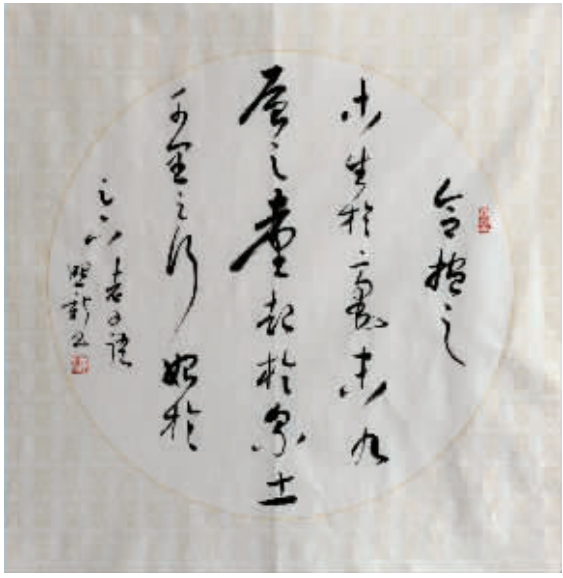 合抱之
木生於毫末九
層之臺起於累土
千里之行始於
足下
老子語